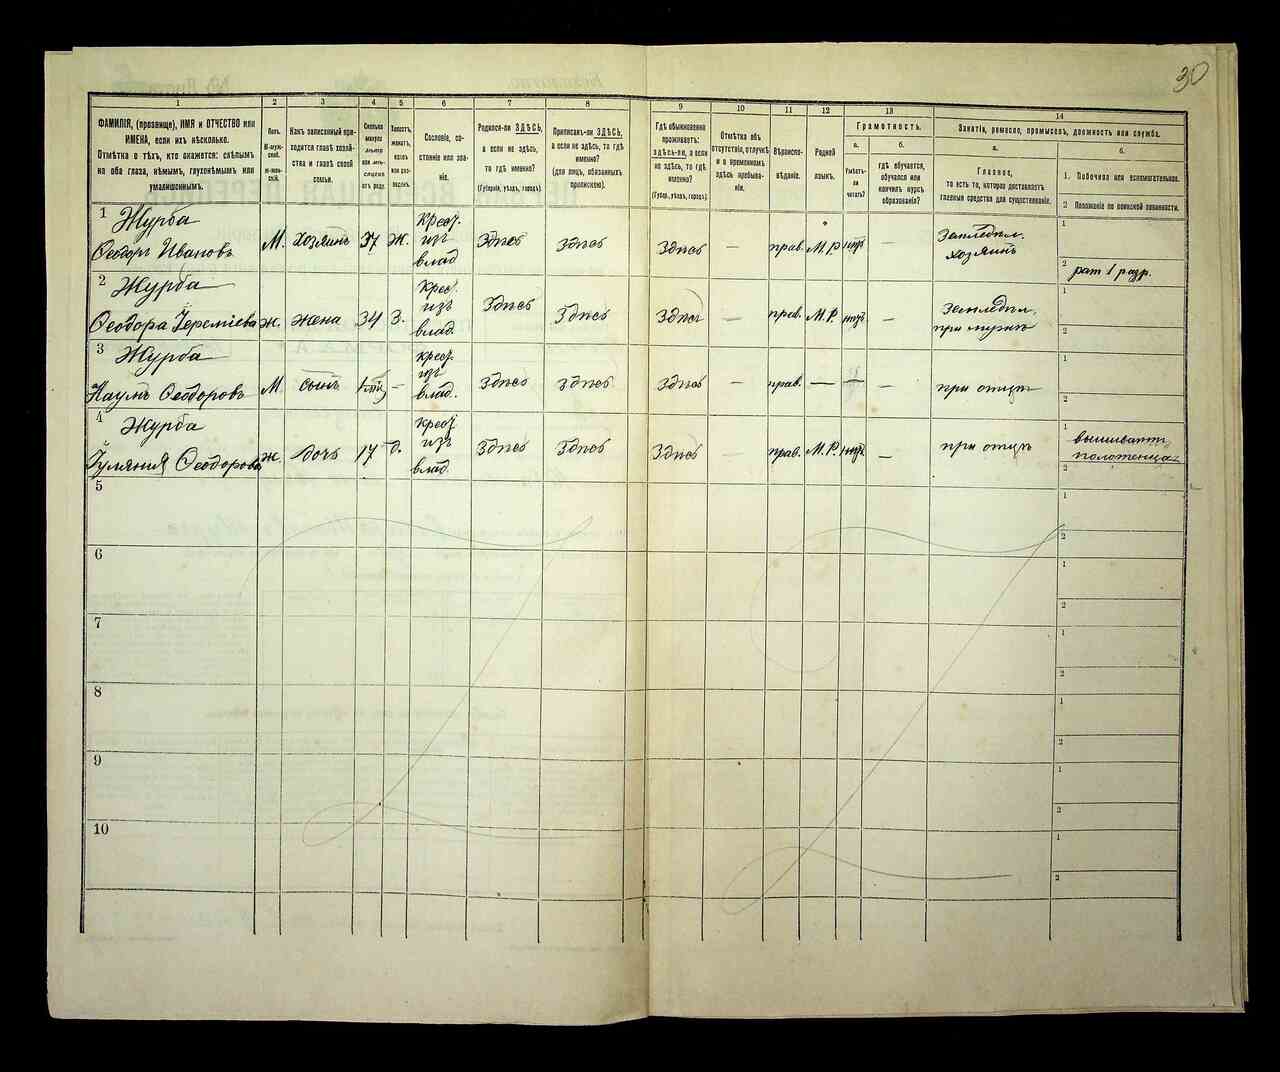 30
1
2
3
4
5
6
7
8
9
10
11
12
13
14
ФАМИЛІЯ, (прозвище), ИМЯ и ОТЧЕСТВО или
ИМЕНА, если ихъ нѣсколько.
Отмѣтка о тѣхъ, кто окажется: слѣпымъ
на оба глаза, нѣмымъ, глухонѣмымъ или
умалишеннымъ.
Полъ.
М-муж-
ской.
Ж-жен-
скій.
Какъ записанный при-
ходится главѣ хозяй-
ства и главѣ своей
семьи.
Сколько
минуло
лѣтъ
или мѣ-
сяцевъ
отъ роду.
Холостъ,
женатъ,
вдовъ
или раз-
веденъ.
Сословіе, со-
стояніе или зва-
ніе.
Родился-ли ЗДѢСЬ,
а если не здѣсь,
то гдѣ именно?
(Губернія, уѣздъ, городъ).
Приписанъ-ли ЗДѢСЬ,
а если не здѣсь, то гдѣ
именно?
(для лицъ, обязанныхъ
припискою).
Гдѣ обыкновенно
проживаетъ:
здѣсь-ли, а если
не здѣсь, то гдѣ
именно?
(Губерн., уѣздъ, городъ).
Отмѣтка объ
отсутствіи, отлучкѣ
и о временномъ
здѣсь пребыва-
ніи.
Вѣроиспо-
вѣданіе.
Родной
языкъ.
Грамотность.
а.
Умѣетъ-
ли
читать?
б.
гдѣ обучается,
обучался или
кончилъ курсъ
образованія?
Занятіе, ремесло, промыселъ, должность или служба.
а.
Главное,
то есть то, которое доставляетъ
главныя средства для существованія.
б.
1. Побочное или вспомогательное.
2 Положеніе по воинской повинности.
1 Журба
Феодоръ Ивановъ
М. хозяинъ 37 ж.
крест.
изъ
влад
Здѣсь Здѣсь Здѣсь — прав. М.Р. нѣтъ —
Земледѣл.
хозяинъ
1
2 рат 1 разр.
2 Журба
Феодора Іереміева
ж. жена 34 з.
крест.
изъ
влад.
Здѣсь Здѣсь Здѣсь — прав. М.Р. нѣтъ —
Земледѣл.
при мужѣ
1
2
3 Журба
Наумъ Феодоровъ
М. сынъ —
крест.
изъ
влад.
Здѣсь Здѣсь Здѣсь — прав. — — —
при отцѣ
1
2
4 Журба
Феодорова
ж. дочь 17 д.
крест.
изъ
влад.
Здѣсь Здѣсь Здѣсь — прав. М.Р. нѣтъ —
при отцѣ
1 вышиваетъ
полотенца
2
5
1
2
6
1
2
7
1
2
8
1
2
9
1
2
10
1
2